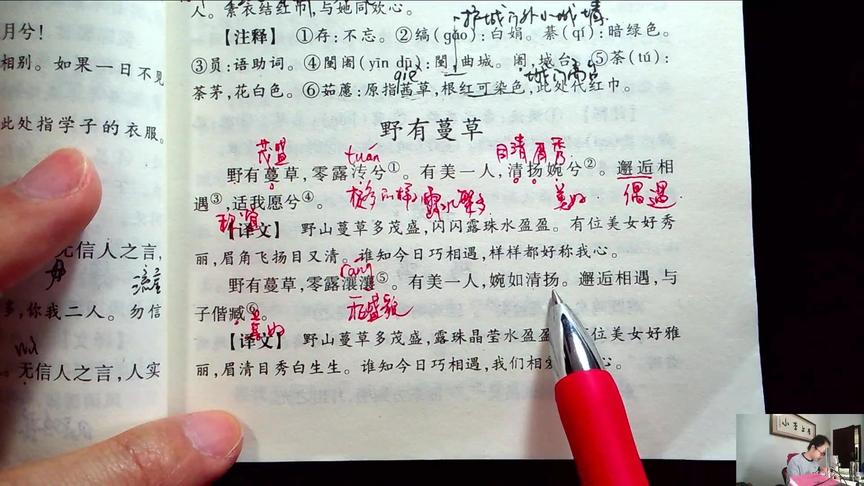 月兮！
相别。如果一日不见
此处指学子的衣服。
无信人之言，
流言
多，你我二人。勿信
无信人之言，人实
人。綦衣结红巾，与她同欢心。
护城门外小城墙
【注释】 ①存：不忘。②缟(gǎo)：白娟。綦(qí)：暗绿色。
③员：语助词。④闉阇(yīn dū)：闉，曲城。阇，城台。⑤荼(tú)：
茅，花白色。⑥茹藘：原指茜草，根红可染色，此处代红巾。
野有蔓草
茂盛 tuán 目清眉秀
野有蔓草，零露漙兮①。有美一人，清扬婉兮②。邂逅相
遇③，适我愿兮④。
美好 偶遇
【译文】 野山蔓草多茂盛，闪闪露珠水盈盈。有位美女好秀
丽，眉角飞扬目又清。谁知今日巧相遇，样样都好称我心。
ráng
野有蔓草，零露瀼瀼⑤。有美一人，婉如清扬。邂逅相遇，与
子偕臧⑥。
美好
【译文】 野山蔓草多茂盛，露珠晶莹水盈盈。有位美女好雅
丽，眉清目秀白生生。谁知今日巧相遇，我们相爱心。